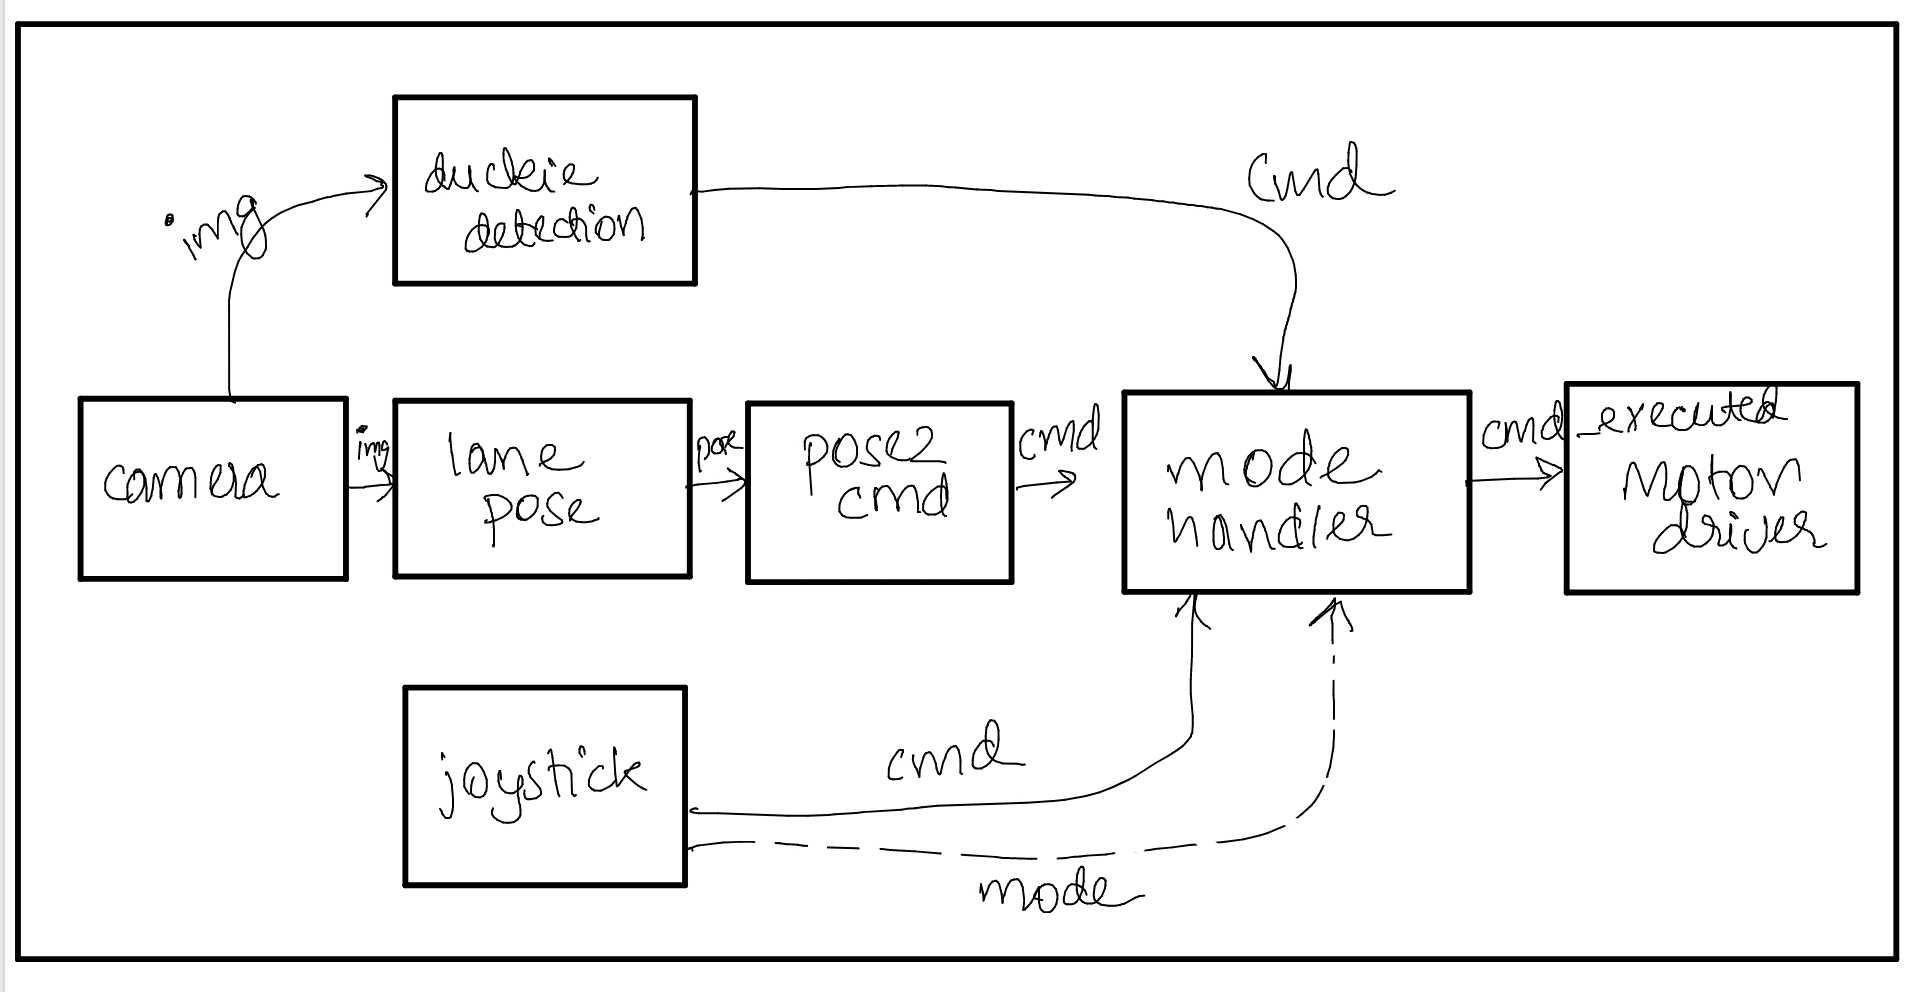 duckie
detection
cmd
img
camera
img
lane
pose
pose
pose2
cmd
cmd
mode
handler
cmd_executed
Moton
driver
joystick
cmd
mode